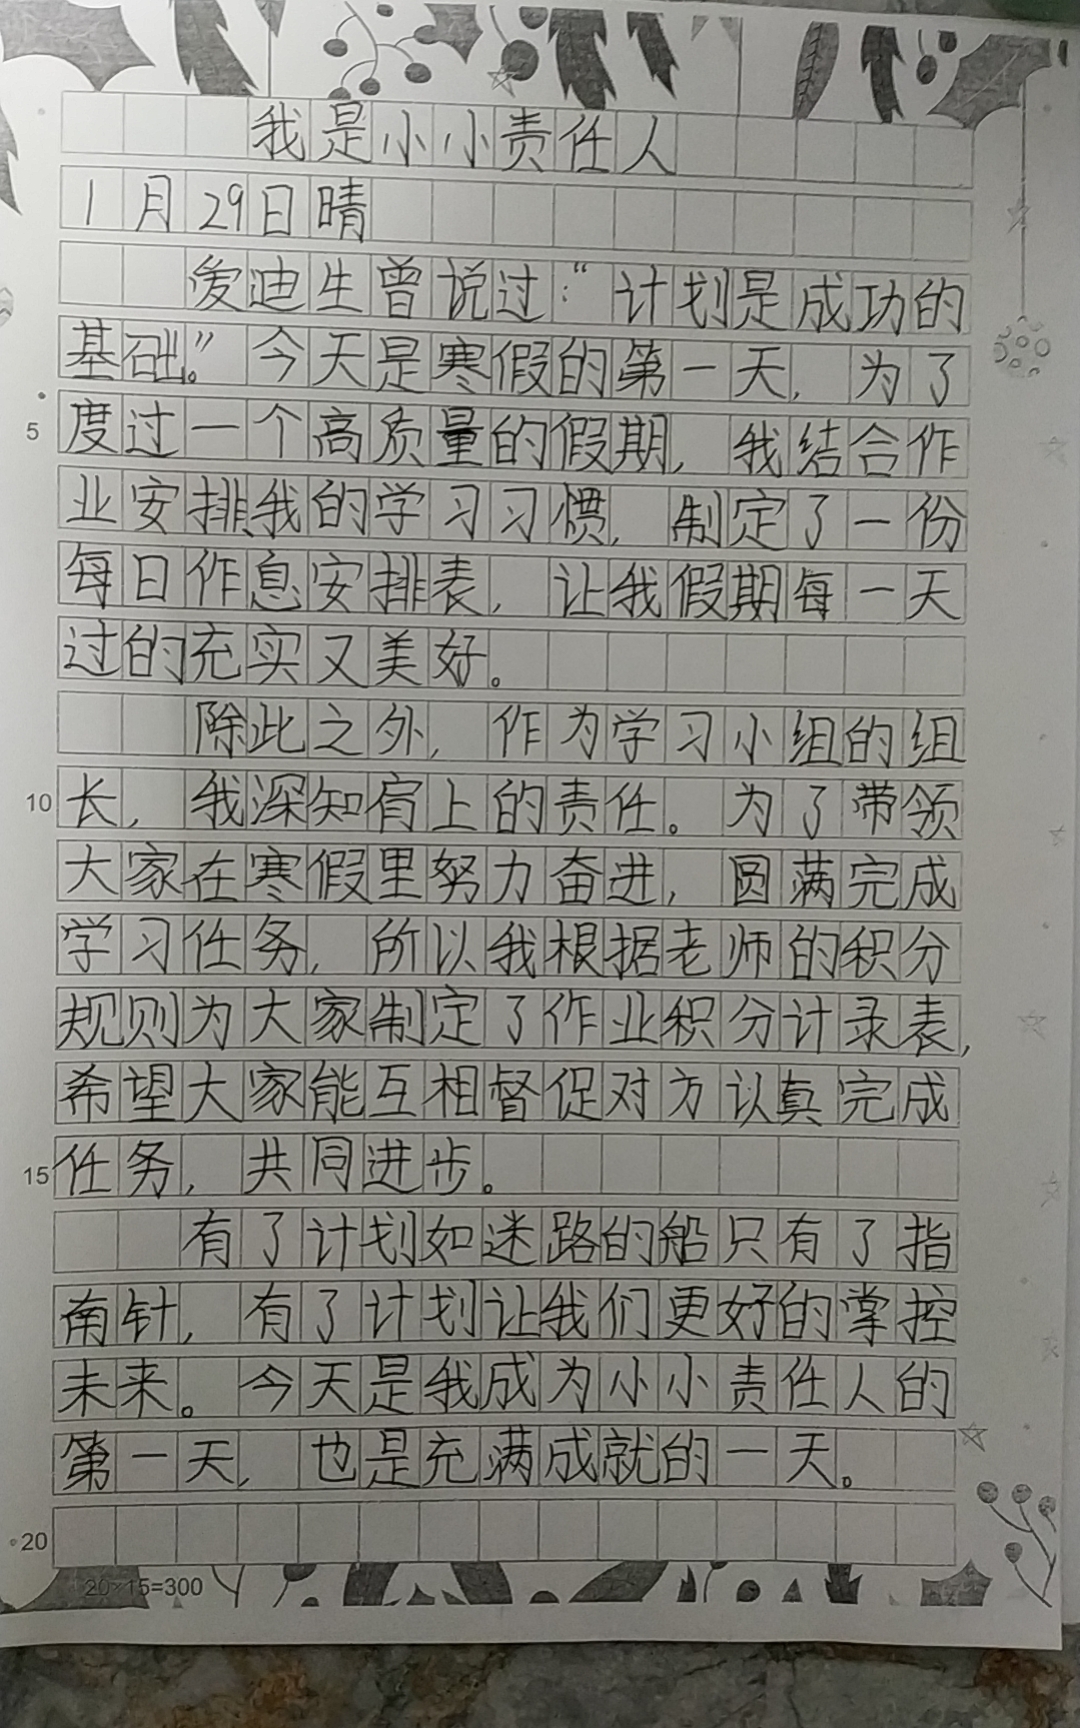 我是小小责任人
1月29日晴
爱迪生曾说过:“计划是成功的
基础。”今天是寒假的第一天,为了
度过一个高质量的假期,我结合作
业安排、我的学习习惯,制定了一份
每日作息安排表,让我假期每一天
过的充实又美好。
除此之外,作为学习小组的组
5
长,我深知肩上的责任。为了带领
10
大家在寒假里努力奋进,圆满完成
学习任务,所以我根据老师的积分
规则为大家制定了作业积分计录表,
希望大家能互相督促对方认真完成
任务,共同进步。
15
有了计划如迷路的船只有了指
南针,有了计划让我们更好的掌控
未来。今天是我成为小小责任人的
第一天,也是充满成就的一天。
20
20×15=300